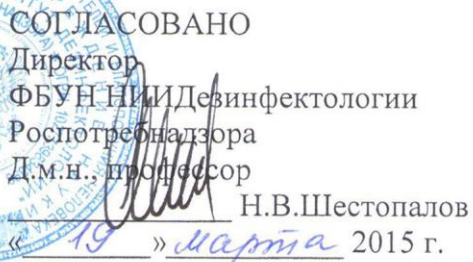 СОГЛАСОВАНО
Директор
ФБУН НИИДезинфектологии
Роспотребнадзора
Д.м.н., профессор
Н.В.Шестопалов
« 19 » марта 2015 г.